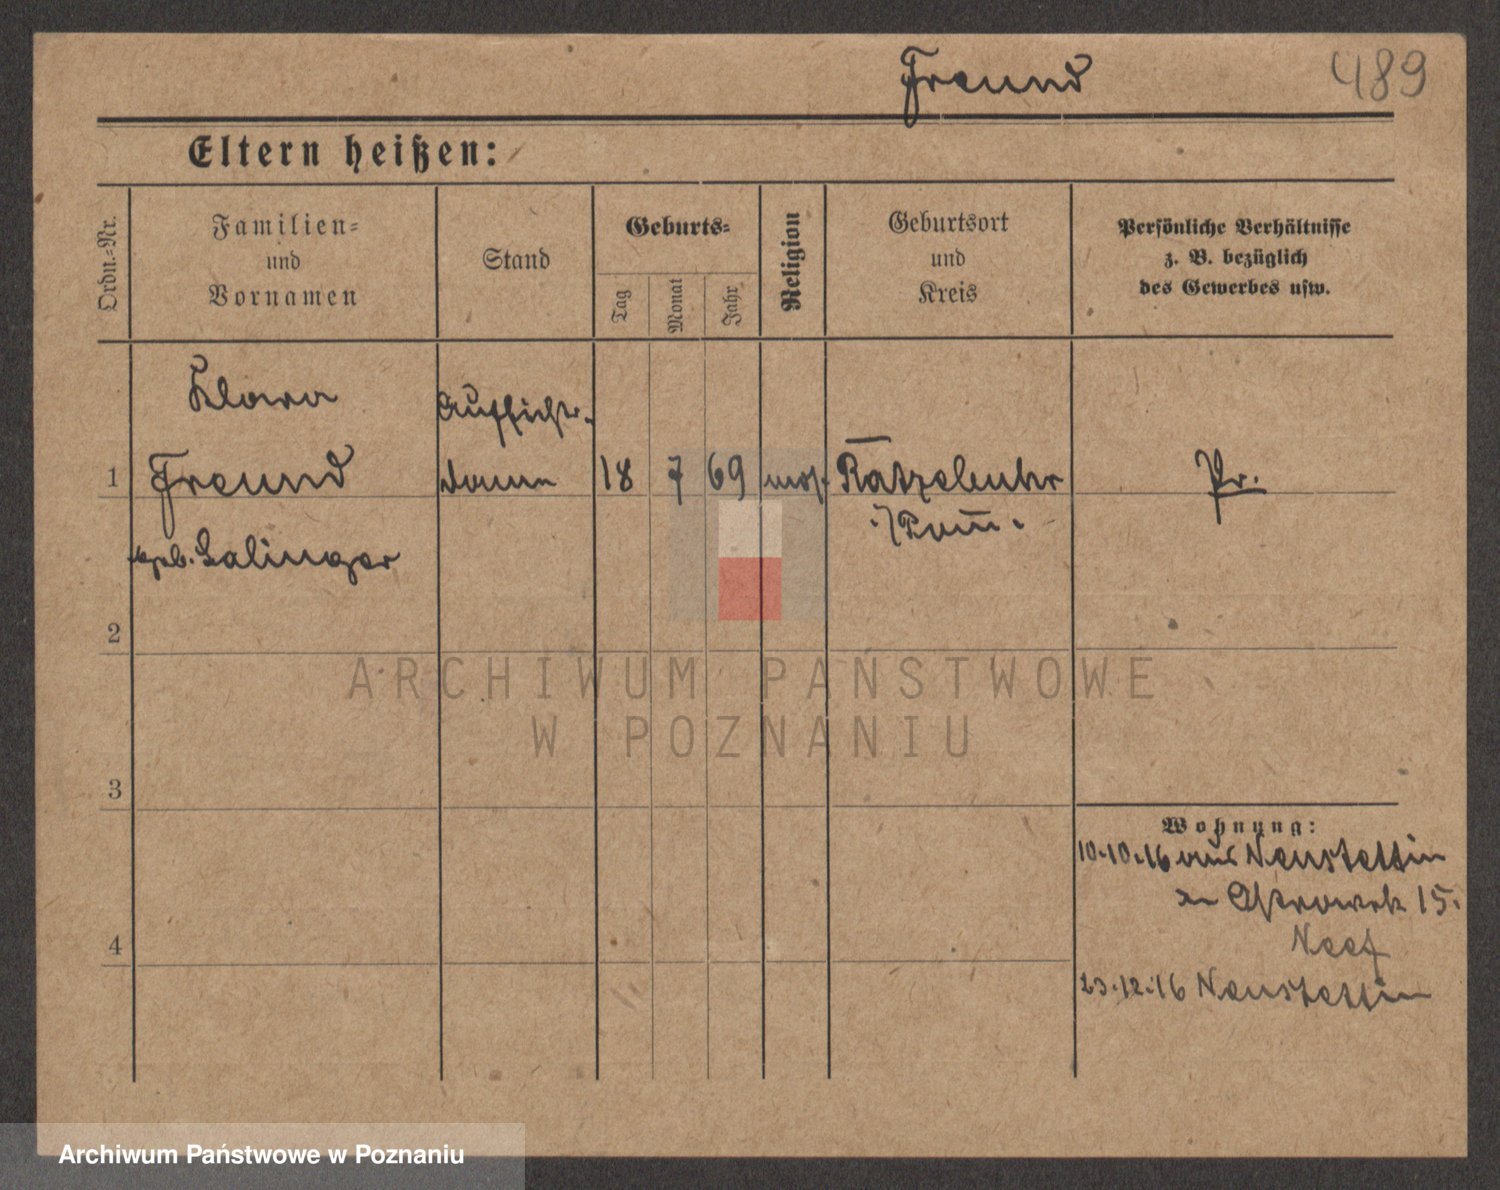 Freund
489
Eltern heißen:
Ordn.-Nr.
Familien-
und
Vornamen
Stand
Geburts-
Tag
Monat
Jahr
Religion
Geburtsort
und
Kreis
Persönliche Verhältnisse
z. B. bezüglich
des Gewerbes usw.
Klara
Aufsichts-
1
Freund
dame
18
7
69
mos.
Ratzebuhr
Pr.
i/Pom.
geb. Salinger
2
ARCHIWUM PAŃSTWOWE
W POZNANIU
3
Wohnung:
10.10.16 aus Neustettin
Ostrowek 15.
4
23.12.16 Neustettin
Archiwum Państwowe w Poznaniu